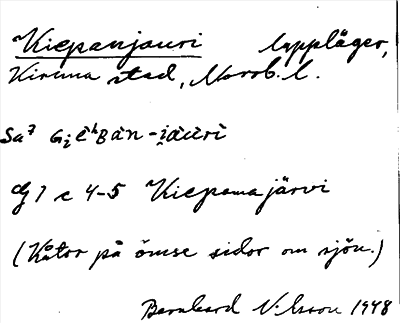 Kiepanjauri lappläger,
Kiruna stad, Norrb. l.
Sa7 Gi̯ēʰBan-i̯au̇ri
Gj 1 c 4-5 Kiepanajärvi
(Kåtor på ömse sidor om sjön.)
Bernhard Nilsson 1948